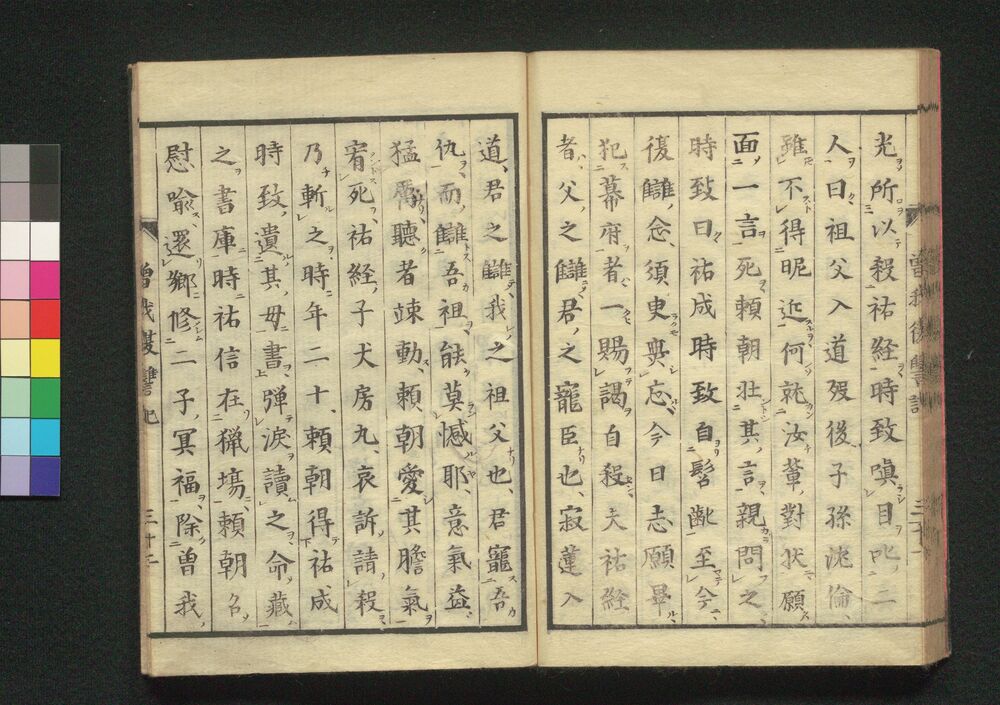 光所以殺祐経時致嗔目叱二
人曰祖父入道歿後子孫沈倫
雖不得昵近何就汝輩對状願
面一言死頼朝壮其言親問之
時致曰祐成時致自髫齔至今
復讎念須臾與忘今日志願畢
犯幕府者一賜謁自殺夫祐経
者父之讎君之寵臣也寂蓮入
道君之讎我之祖父也君寵吾
仇而讎吾祖能莫憾耶意氣益
猛厲聴者竦動頼朝愛其膽氣
宥死祐経子犬房九哀訴請殺
乃斬之時年二十頼朝得祐成
時致遺其母書弾涙讀之命藏
之書庫時祐信在獵場頼朝名
慰喩還郷修二子冥福除曽我
曽我復讐記
三十二